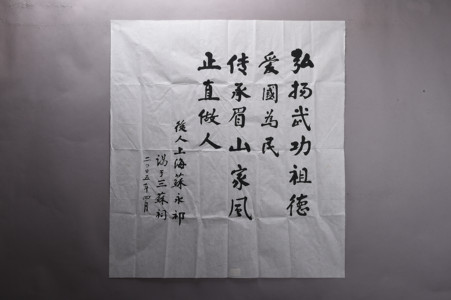 弘扬武功祖德
爱國為民
传承眉山家风
正直做人
後人上海蘇永祁
谒于三蘇祠
二〇〇五年四月